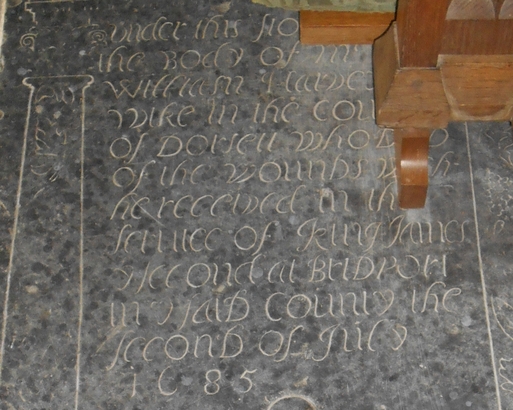 under this
the Body of
William Harve
wike in the cou
of Dorsett who
of the wounds
he received in th
service of King James
ye second at Bridport
in said County the
second of July
1685